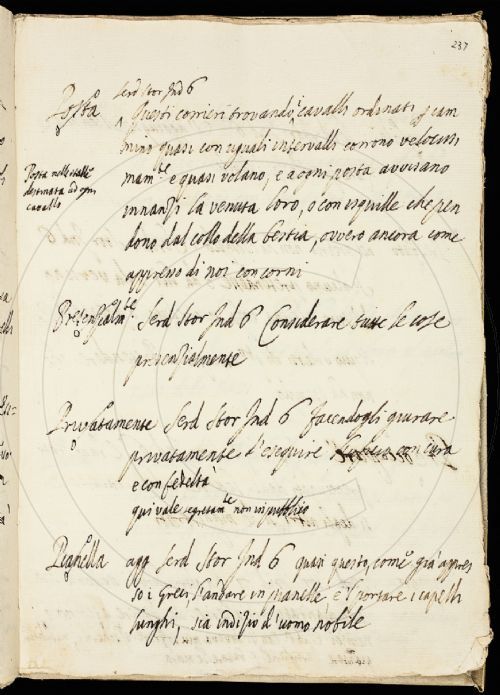 237
Posta Serd Stor Ind 6
Questi corrieri trovando i cavalli ordinati p cam
mino quasi con eguali intervalli corrono velociss
mamte e quasi volano, e a ogni posta avvisano
innanzi la venuta loro, o con squille che pen
dono dal collo della bestia, ovvero ancora come
appresso di noi con corni
Posta nelle stalle
destinata ad ogni
cavallo
Presenzialmte. Serd Stor Ind 6 Considerare tutte le cose
presenzialmente
Privatamente Serd Stor Ind 6 facendogli giurare
privatamente d'eseguire con cura
e con fedeltà
qui vale segretamte non in pubblico
Pianella agg Serd Stor Ind 6 quasi questo, come già appres
so i Greci, l'andare in pianelle e 'l portare i capelli
lunghi, sia indizio d'uomo nobile